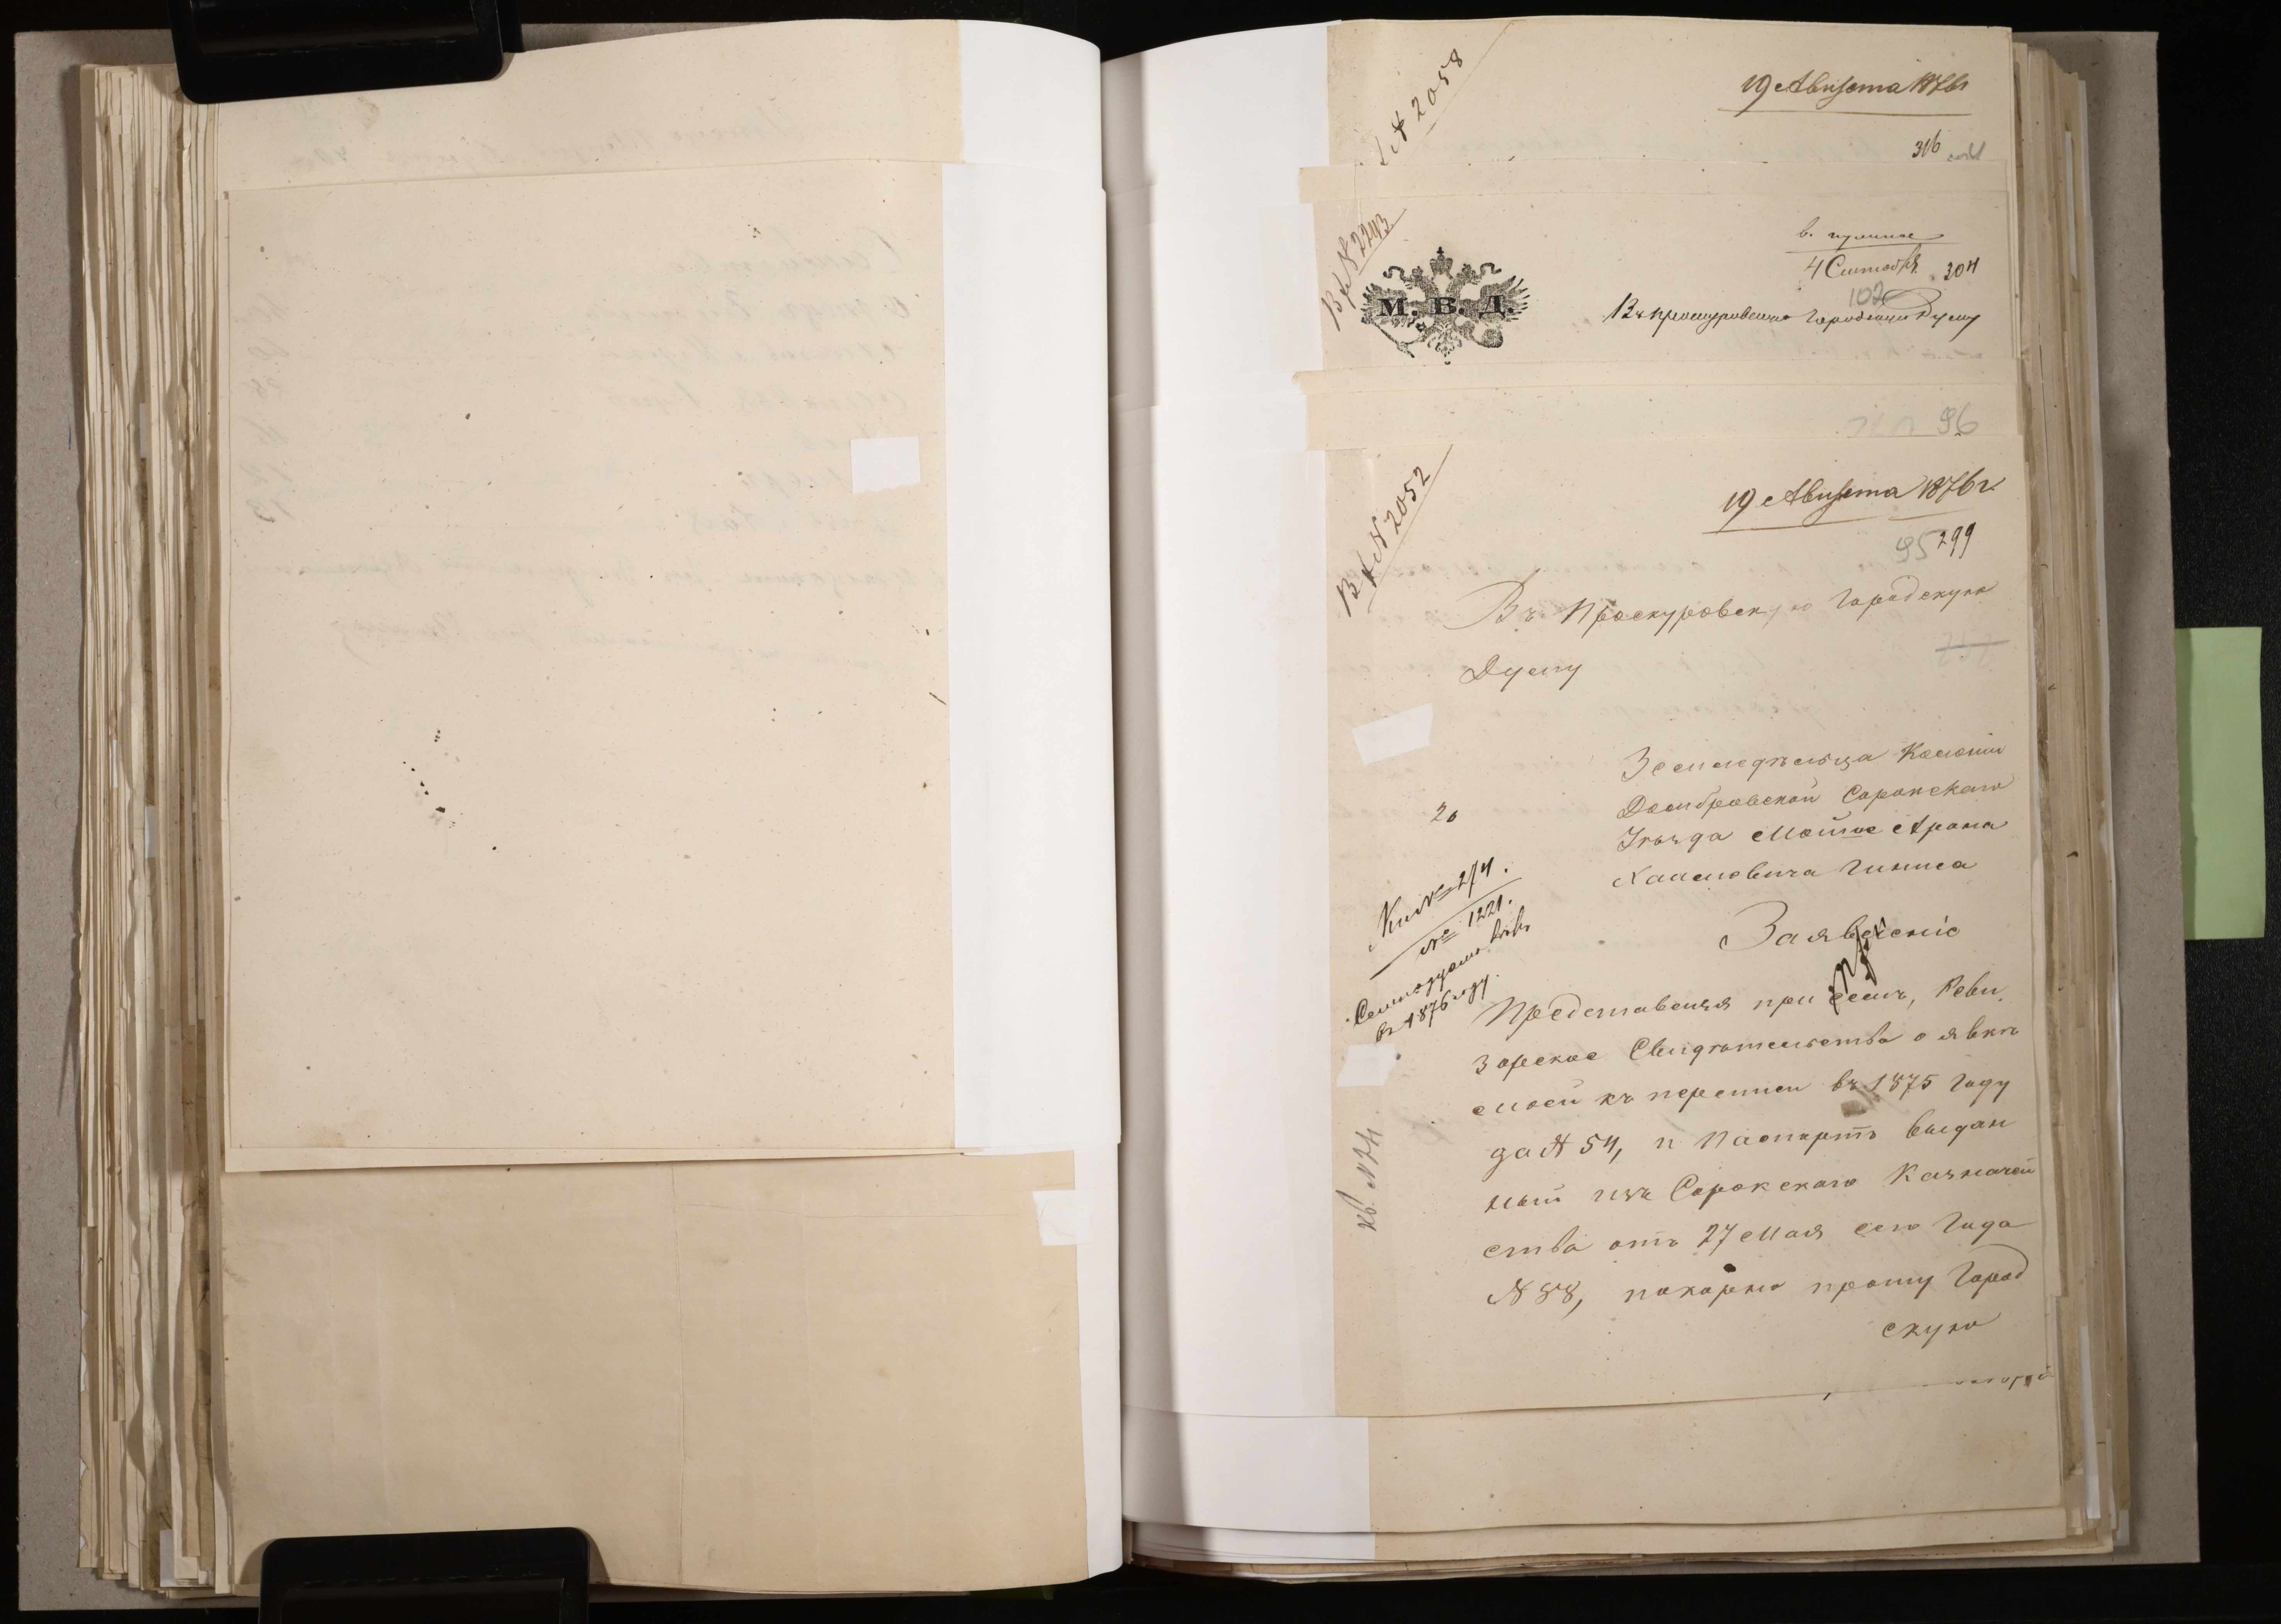 № 2058
19 Августа 1876 г
316
Вх № 2243
4 Сентября 304
102
М. В. Д.
Въ Проскуровскую Городскую Думу
96
Вх № 2052
19 Августа 1876 г.
95 299
Въ Проскуровскую Городскую
Думу
Земледѣльца Колонии
Домбровской Сорокскаго
Уѣзда Мойше Арона
Хаимовича Гиниса
20
№ 1221.
въ 1876 году.
Заявленіе
Представляя при семъ, Реви
зорское Свидѣтельство о явкѣ
моей къ переписи въ 1875 году
за № 54, и Паспортъ выдан
ный изъ Сорокскаго Казначей
ства отъ 27 Мая сего Года
№ 88, покорно прошу Город
скую
кв. № 74